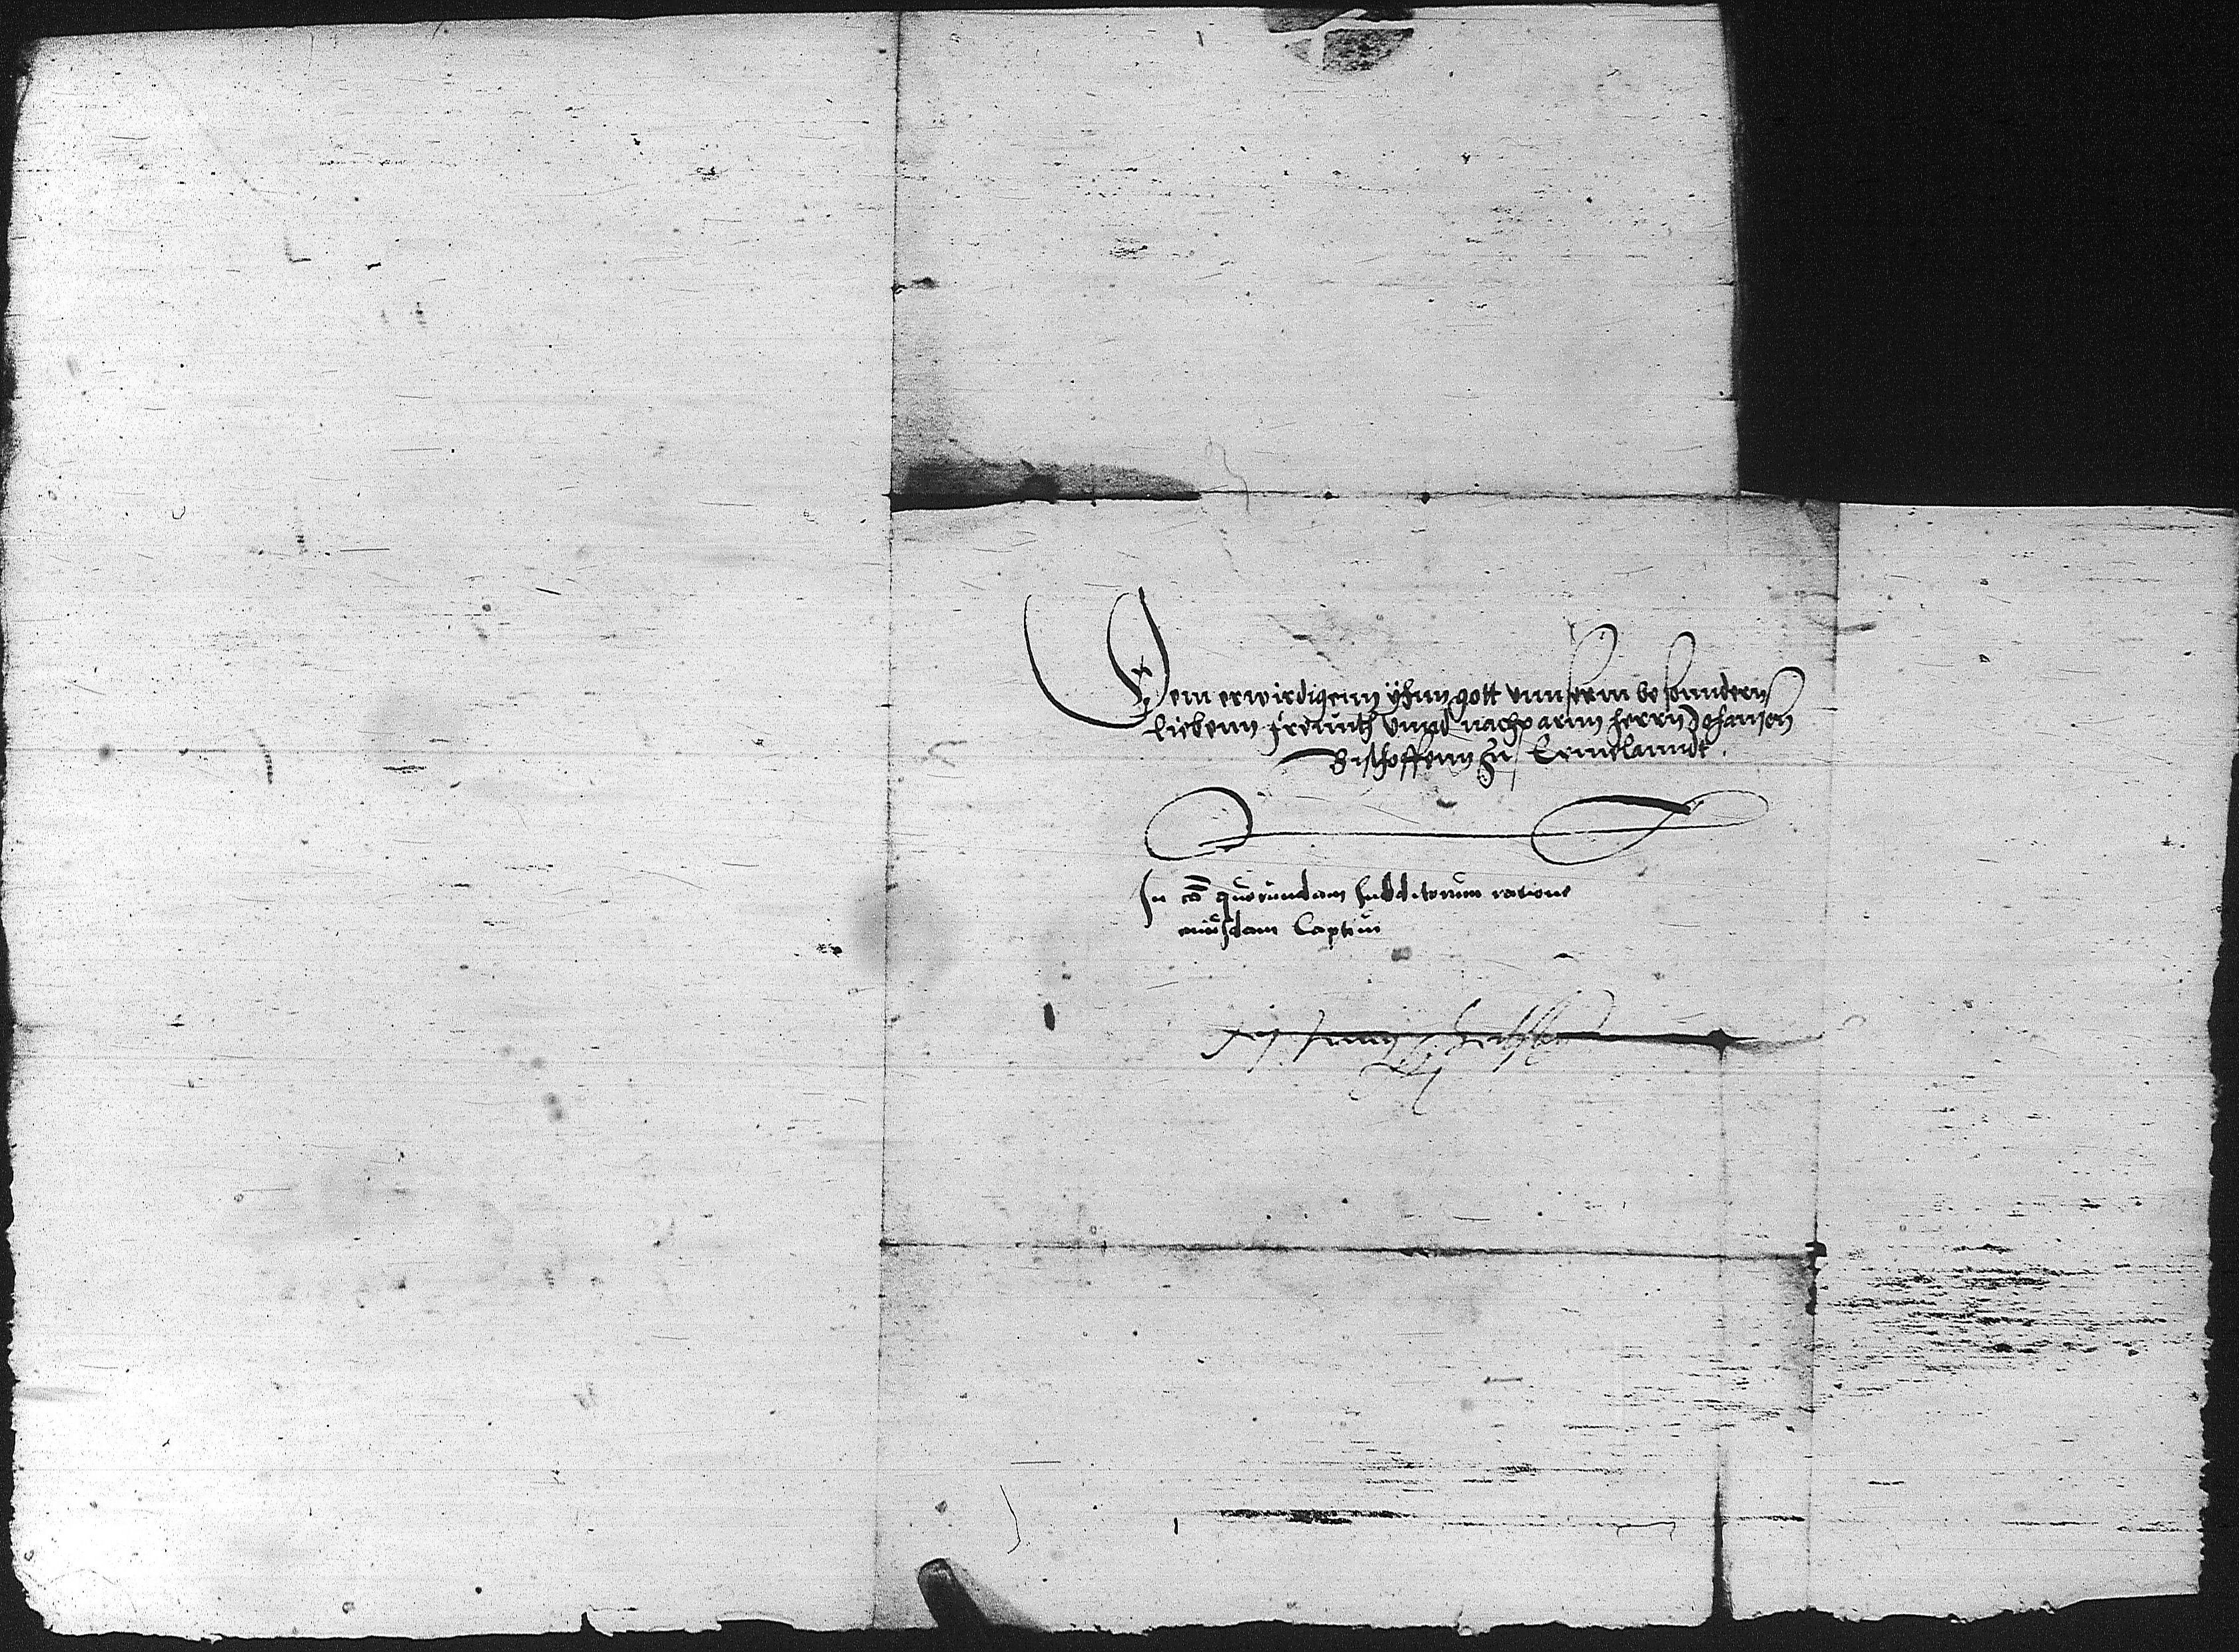 Dem erwirdigenn ÿhnn gott vnnserm besonndern
liebenn freunth vnnd nachparnn herrn Johansen
Bischoffenn zu Ermelanndt.
In cã quorundam subditorum ratione
cuiusdam Captiui